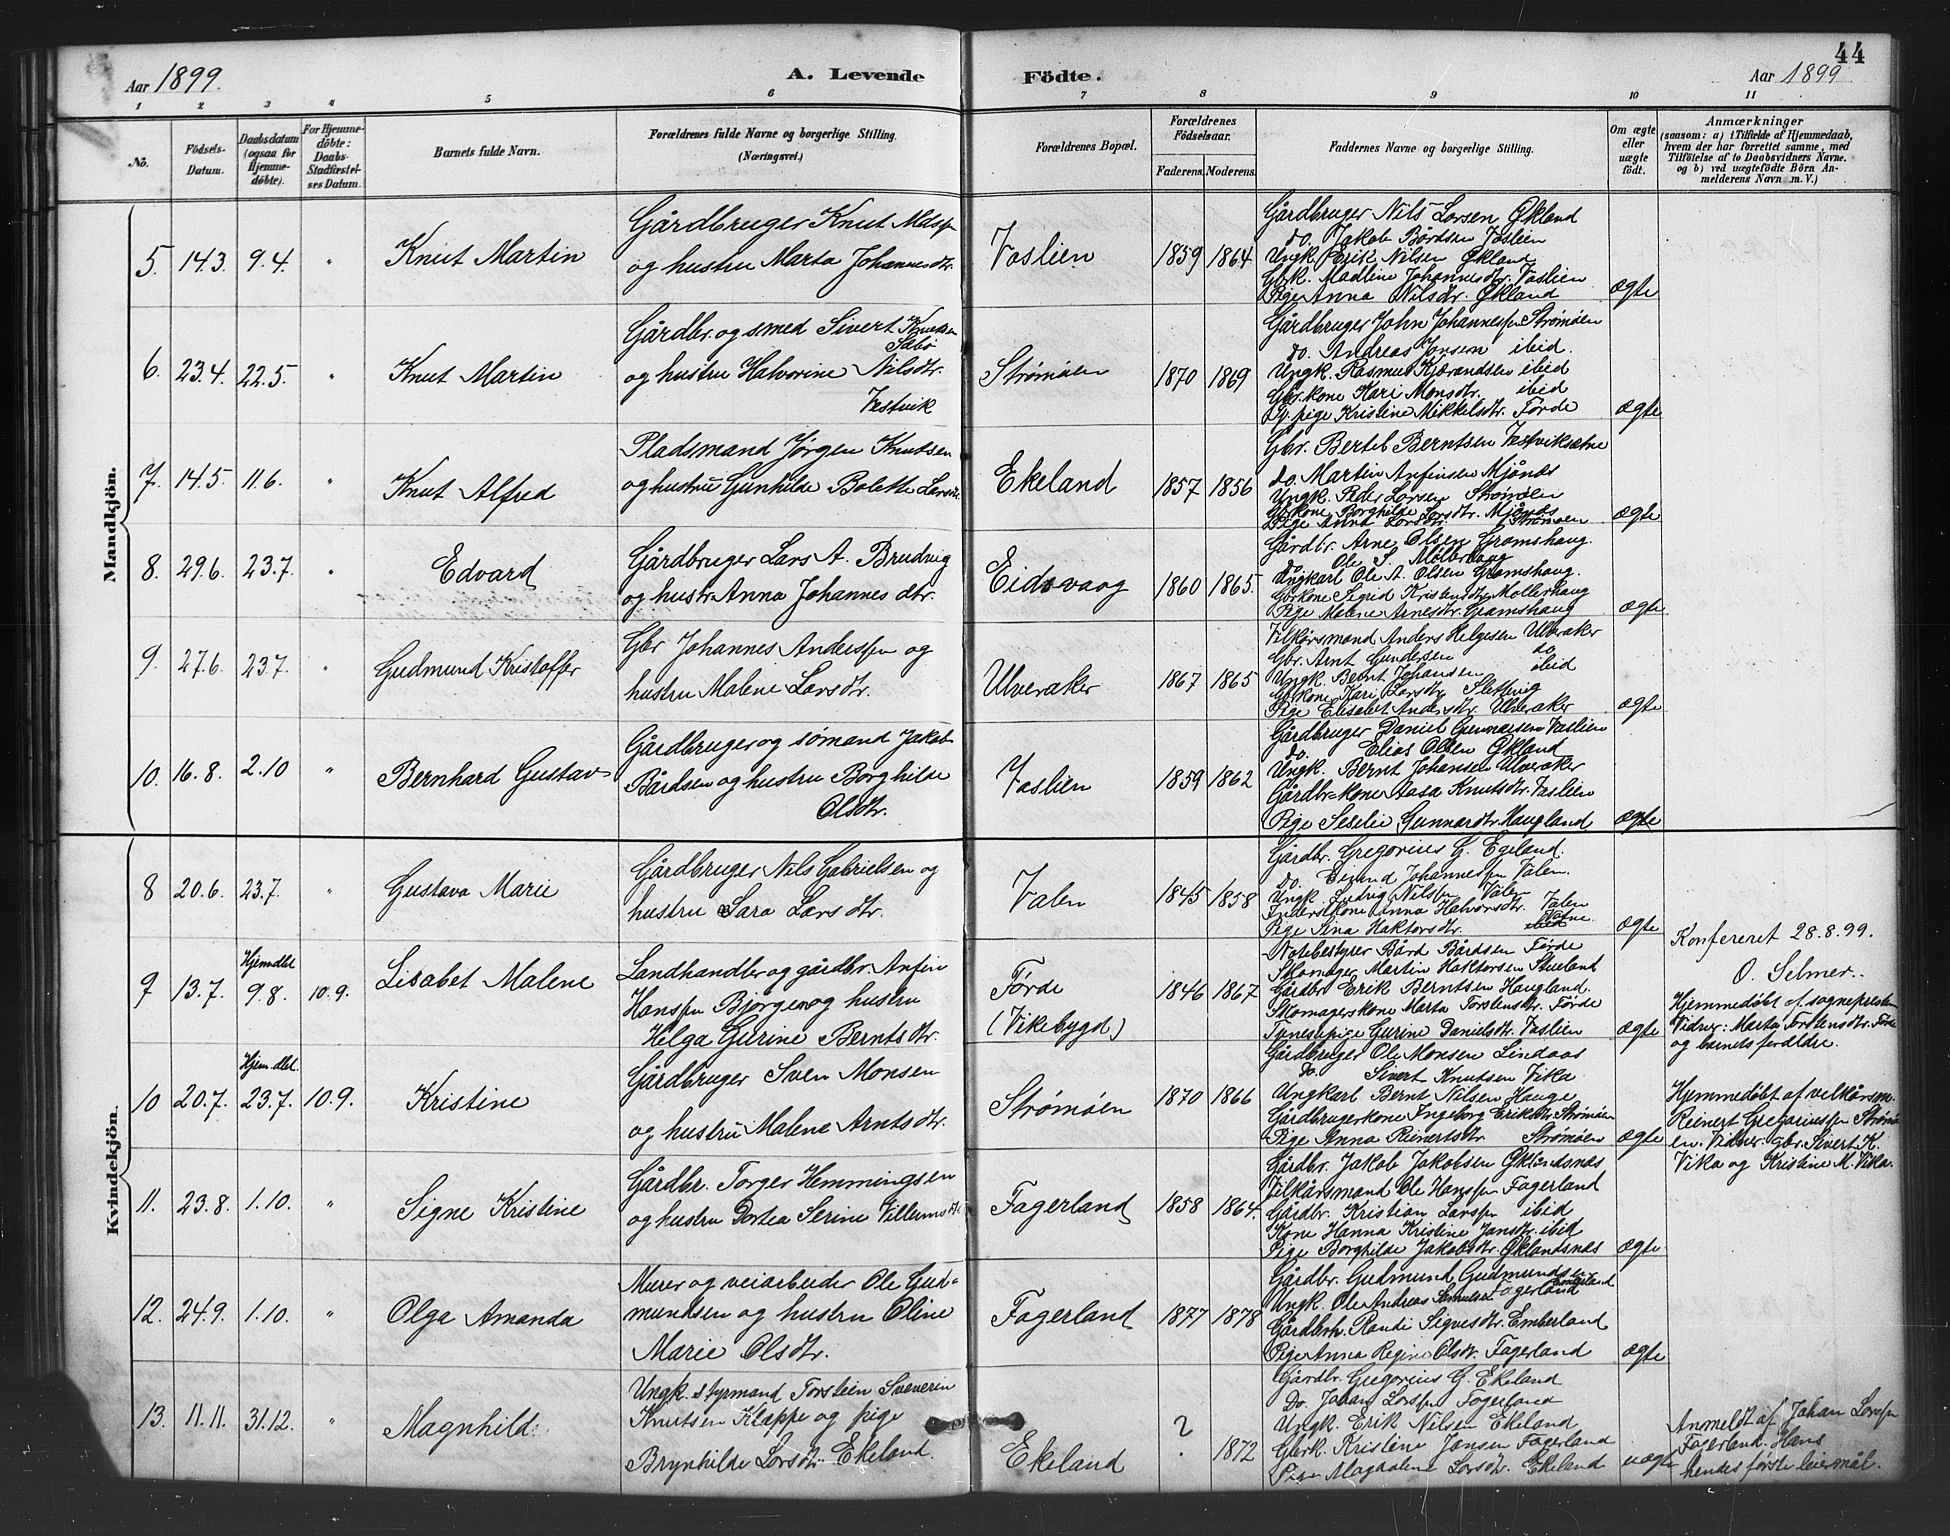 44
Aar 1899.
A. Levende Födte.
Aar 1899
1 2 3 4 5 6 7 8 9 10 11
No.
Födsels-Datum.
Daabsdatum (ogsaa for Hjemme-döbte).
For Hjemme-döbte: Daabs-Stadfæstel-ses Datum.
Barnets fulde Navn.
Forældrenes fulde Navne og borgerlige Stilling.
(Næringsvei.)
Forældrenes Bopæl.
Forældrenes Födselsaar.
Faderens. Moderens.
Faddernes Navne og borgerlige Stilling.
Om ægte eller uægte födt.
Anmærkninger
(saasom: a) i Tilfælde af Hjemmedaab,
hvem der har forrettet samme, med
Tilföielse af to Daabsvidners Navne.
og b) ved uægtefödte Börn An-
melderens Navn m. V.)
Mandkjön.
5. 14.3. 9.4. " Knut Martin
Gårdbruger Knut
og hustru Marta Johannesdtr.
Vaslien 1859 1864
Gårdbruger Nils Larsen Økland
do. Jakob Bårdsen Vaslien
Ungk. Erik Nilsen Økland
Gbrk. Madline Johannesdtr. Vaslien
Pige Anna Nilsdtr. Økland
ægte
6. 23.4. 22.5. " Knut Martin
Gårdbr. og smed Sivert Knutsen
Sæbø
og hustru Halvorine Nilsdtr.
Vestvik
Strømøen 1870 1869
Gårdbruger John Johannessen Strømøen
do. Andreas Jonsen ibid.
Ungk. Rasmus Kjærandsen ibid
Gbr.kone Kari Monsdtr. ibid
pige Kristine Mikkelsdtr. Førde
ægte
7. 14.5. 11.6. " Knut Alfred
Pladsmand Jørgen Knutsen
og hustru Gunhilde Bolette Larsdtr.
Ekeland 1857 1856
Gbr. Bertel Berntsen
do. Martin Anfinsen Mjånæs
Ungk. Peder Larsen Strømøen
Gbrkone Borghilde Larsdtr. Mjånæs
Pige Anna Larsdtr. Strømøen
ægte
8. 29.6. 23.7. " Edvard
Gårdbruger Lars A. Brudvig
og hustr. Anna Johannes dtr.
Eidsvaag 1860 1865.
Gårdbr. Arne Olsen Gramshaug.
do Ole S. Møllerhaug
Ungkarl Ole A. Olsen Gramshaug.
Gbrkone Sigrid Kristensdtr. Møllerhaug
Pige Malene Arnesdtr. Gramshaug
ægte
9. 27.6. 23.7. " Gudmund Kristoffer
Gbr Johannes Anderssen og
hustru Malene Larsdtr.
Ulveraker 1867 1865
Vilkårsmand Anders Helgesen Ulveraker
Gbr. Arnt Gundersen do
Ungk. Bernt Johansen ibid
Gbrkone Kari Larsdtr. Slettevig
Pige Elisabet Andersdtr. Ulveraker
ægte
10. 16.8. 2.10 " Bernhard Gustav
Gårdbruger og sømand Jakob
Bårdsen og hustru Borghilde
Olsdtr.
Vaslien 1859 1862
Gårdbruger Daniel Gunnarsen Vaslien
do. Elias Olsen Økland
Ungk. Bernt Johansen Ulveraker
Gårdbr=kone Aasa Knutsdtr. Vaslien
Pige Seselie Gunnardtr. Haugland
ægte
Kvindekjön.
8 20.6. 23.7. " Gustava Marie
Gårdbruger Nils Gabrielsen og
hustru Sara Larsdtr.
Valen 1845 1858
Gårdbr. Gregorius G. Egeland.
do. Johannessen Valen.
Ungk. Ludvig Nilssen Valen
kone Anna Halvorsdtr. Valen
Pige Sina Haktorsdtr.
ægte
Konfereret 28.8.99.
O. Selmer.
9 13.7. Hjemdbt. 9.8. 10.9. Lisabet Malene
Landhandler og gårdbr. Anfin
Hanssen Bjørgen og hustru
Helga Gurine Berntsdtr.
Førde
(Vikebygd)
1846 1867
Bård Bårdsen Førde
Skomager Martin Haktorsen Stueland
Gårdbr Erik Berntsen Haugland.
Skomagerkone Marta Torstensdtr. Førde
Tjenestepige Gurine Danielsdtr. Vaslien
ægte
Hjemmedøbt af sognepresten
Vidner: Marta Torstensdtr. Førde
og barnets forældre.
10 20.7. Hjemdbt. 23.7. 10.9. Kristine
Gårdbruger Sven Monsen
og hustru Malene Arntsdtr.
Strømøen 1870 1866
Gårdbruger Ole Monsen Lindaas
do. Sivert Knutsen Vika
Ungkarl Bernt Nilsen Hauge
Gårdbrugerkone Ingeborg Eriksdtr. Strømøen
Pige Anna Reinertsdtr Strømøen
ægte
Hjemmedøbt af velkårsm.
Reinert Gregoriussen Strømø
en. Vidner gbr. Sivert K.
Vika og Kristine M. Vika.
11. 23.8. 1.10. " Signe Kristine
Gårdbr. Torger Hemmingsen
og hustru Dortea Serine Villumsdtr.
Fagerland 1858 1864.
Gårdbr. Jakob Jakobsen Øklandsnæs
Vilkårsmand Ole Hanssen Fagerland
Gårdbr. Kristian Larssen ibid
Kone Hanna Kristine Jansdtr. ibid
Pige Borghilde Jakobsdtr. Øklandsnæs
ægte
12. 24.9. 1.10. " Olga Amanda
Murer og veiarbeider Ole Gud=
mundsen og hustru Oline
Marie Olsdtr.
Fagerland 1877 1878
Gårdbr. Gudmund Gudmundsen
Ungk. Ole Andreas Samuelsen Fagerland
Gårdbrk. Randi Sigvesdtr. Emberland
Pige Anna Regine Olsdtr. Fagerland
ægte
13. 11.11. 31.12. " Magnhild.
Ungk. styrmand Torstein Severin
Knutsen Klappe og pige
Brynhilde Larsdtr. Ekeland.
Ekeland ? 1872
Gårdbr. Gregorius G. Ekeland
Do. Johan Larssen Fagerland
Ungk. Erik Nilsen Ekeland
Gbrk. Kristine Jansen Fagerland
Pige Magdalene Larsdtr. Ekeland
uægte
Anmeldt af Johan Larssen
Fagerland. Hans
hendes første leiermål.